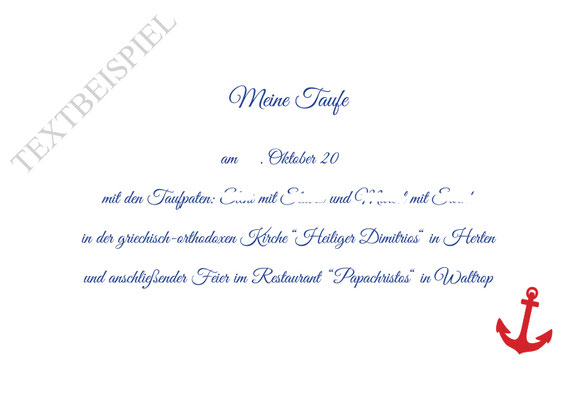 TEXTBEISPIEL
Meine Taufe
am . Oktober 20
mit den Taufpaten: mit und mit
in der griechisch-orthodoxen Kirche “Heiliger Dimitrios“ in Herten
und anschließender Feier im Restaurant “Papachristos“ in Waltrop